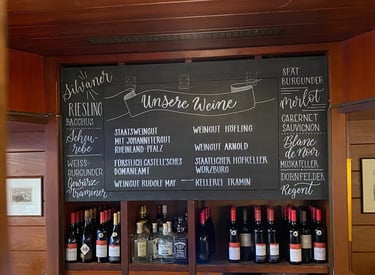 Silvaner
RIESLING
BACCHUS
Scheu-
rebe
WEISS-
BURGUNDER
Gewürz-
Traminer
Unsere Weine
STAATSWEINGUT
MIT JOHANNITERGUT
RHEINLAND-PFALZ
FÜRSTLICH CASTELL'SCHES
DOMÄNEAMT
WEINGUT RUDOLF MAY
WEINGUT HÖFLING
WEINGUT ARNOLD
STAATLICHER HOFKELLER
WÜRZBURG
KELLEREI TRAMIN
SPÄT
BURGUNDER
Merlot
CABERNET
SAUVIGNON
Blanc
de Noir
MUSKATELLER
DORNFELDER
Regent